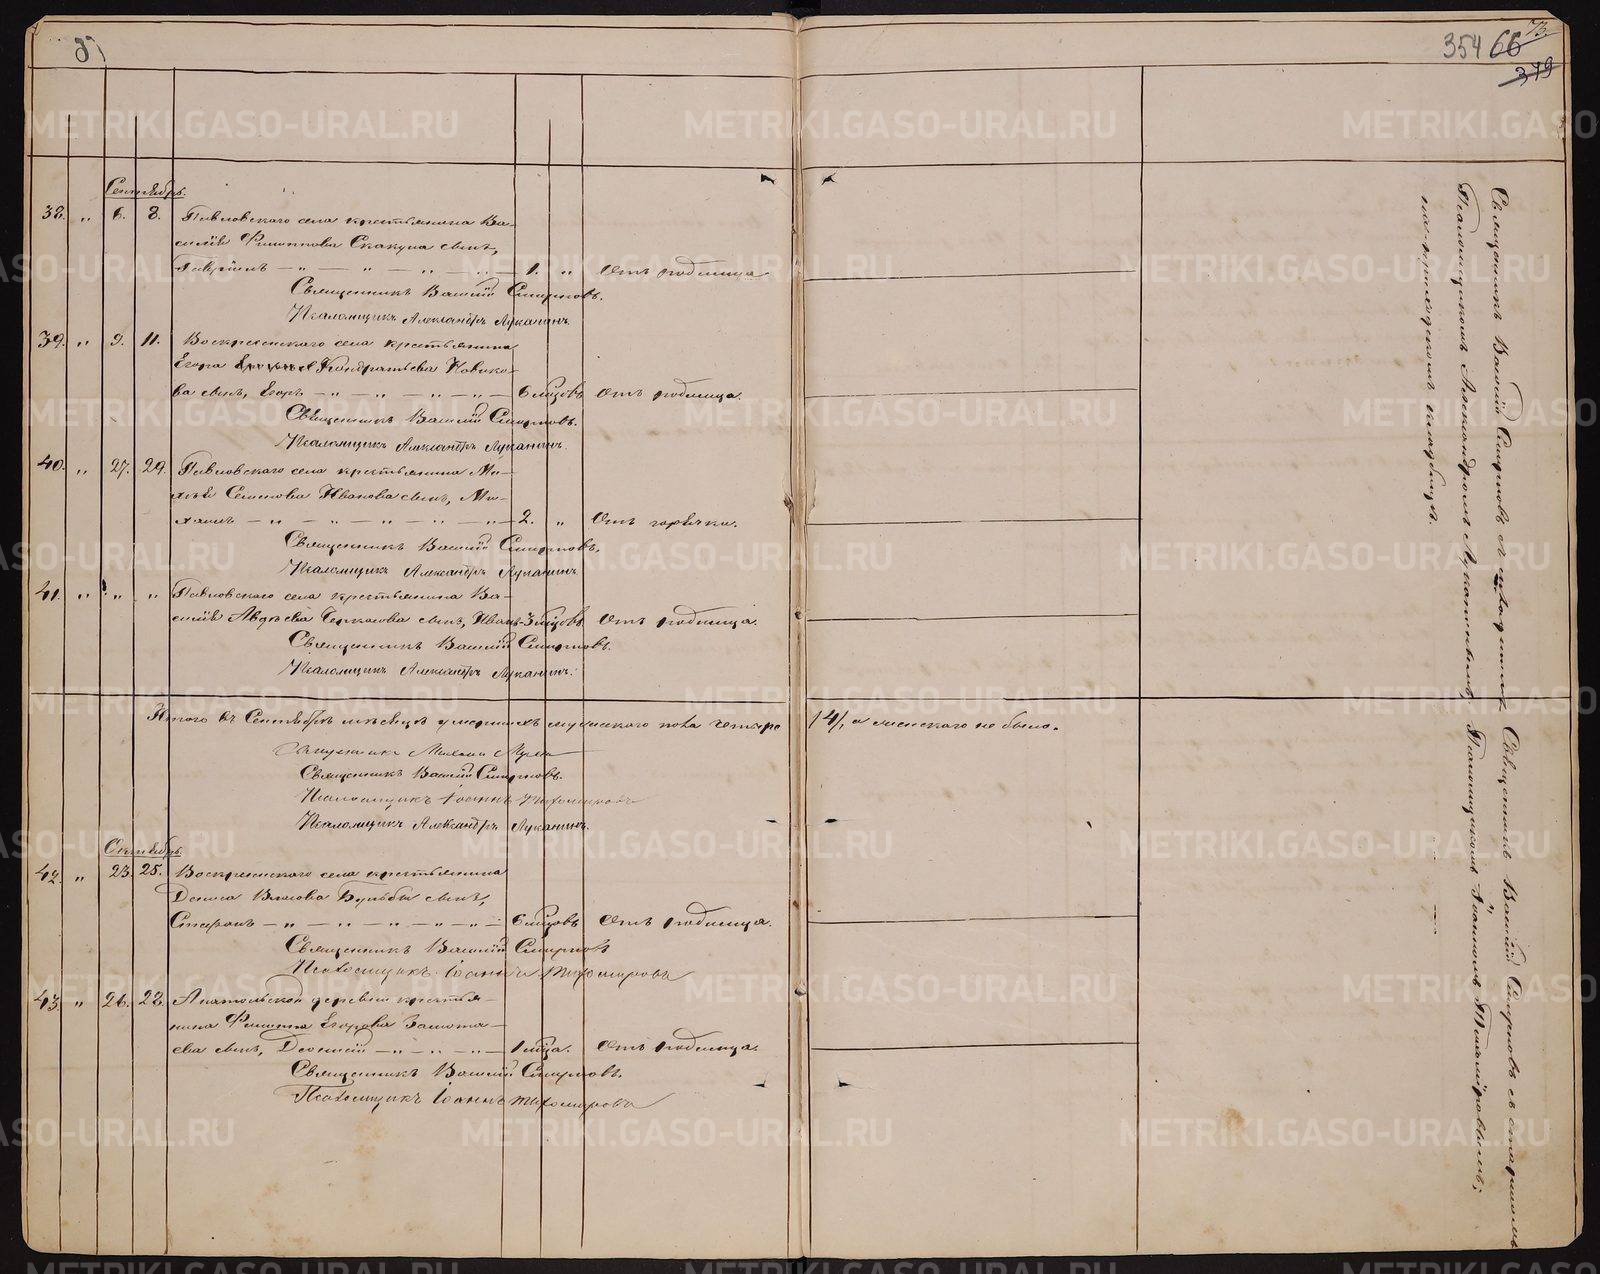 354 66 73.
379
Сентябрь.
38. " 6. 8. Павловскаго села крестьянина Ва-
силія Филиппова Скакуна сынъ,
Гавріилъ — " — " — " — " — 1. " Отъ родимца
Священникъ Василій Смирновъ.
Псаломщикъ Александръ Луканинъ.
39. " 9. 11. Воскресенскаго села крестьянина
Егора Кондратьева Новико-
ва сынъ, Егоръ — " — " — " — " — 6 мѣсцовъ Отъ родимца.
Священникъ Василій Смирновъ.
Псаломщикъ Александръ Луканинъ.
40. " 27. 29. Павловскаго села крестьянина Ма-
твѣя Семенова Иванова сынъ, Ми-
хаилъ — " — " — " — " — " — 2. " Отъ горячки.
Священникъ Василій Смирновъ.
Псаломщикъ Александръ Луканинъ.
41. " " " Павловскаго села крестьянина Ва-
силія Авдѣева сынъ, Иванъ - 3 мѣсцовъ Отъ родимца.
Священникъ Василій Смирновъ.
Псаломщикъ Александръ Луканинъ.
Итого въ Сентябрѣ мѣсяцѣ умершихъ мужескаго пола четыре /4/, а женскаго не было.
Священникъ Михаилъ
Священникъ Василій Смирновъ.
Псаломщикъ Іоаннъ Тихомировъ
Псаломщикъ Александръ Луканинъ.
Октябрь.
42. " 23. 25. Воскресенскаго села крестьянина
Дениса Власова Бульбы сынъ,
Стефанъ — " — " — " — " — " — 6 мѣсцовъ Отъ родимца.
Священникъ Василій Смирновъ
Псаломщикъ Іоаннъ Тихомировъ
43. " 26. 28. Анатольской деревни крестья-
нина Филиппа Егорова Замота-
ева сынъ, Діонисій — " — " — " — 1 мѣсца. Отъ родимца.
Священникъ Василій Смирновъ.
Псаломщикъ Іоаннъ Тихомировъ
Священникъ Василій Смирновъ съ
Псаломщикомъ Александромъ Луканинымъ,
на приходскомъ кладбищѣ.
Священникъ Василій Смирновъ съ старшимъ
Псаломщикомъ Іоанномъ Тихомировымъ;
— " —
METRIKI.GASO-URAL.RU